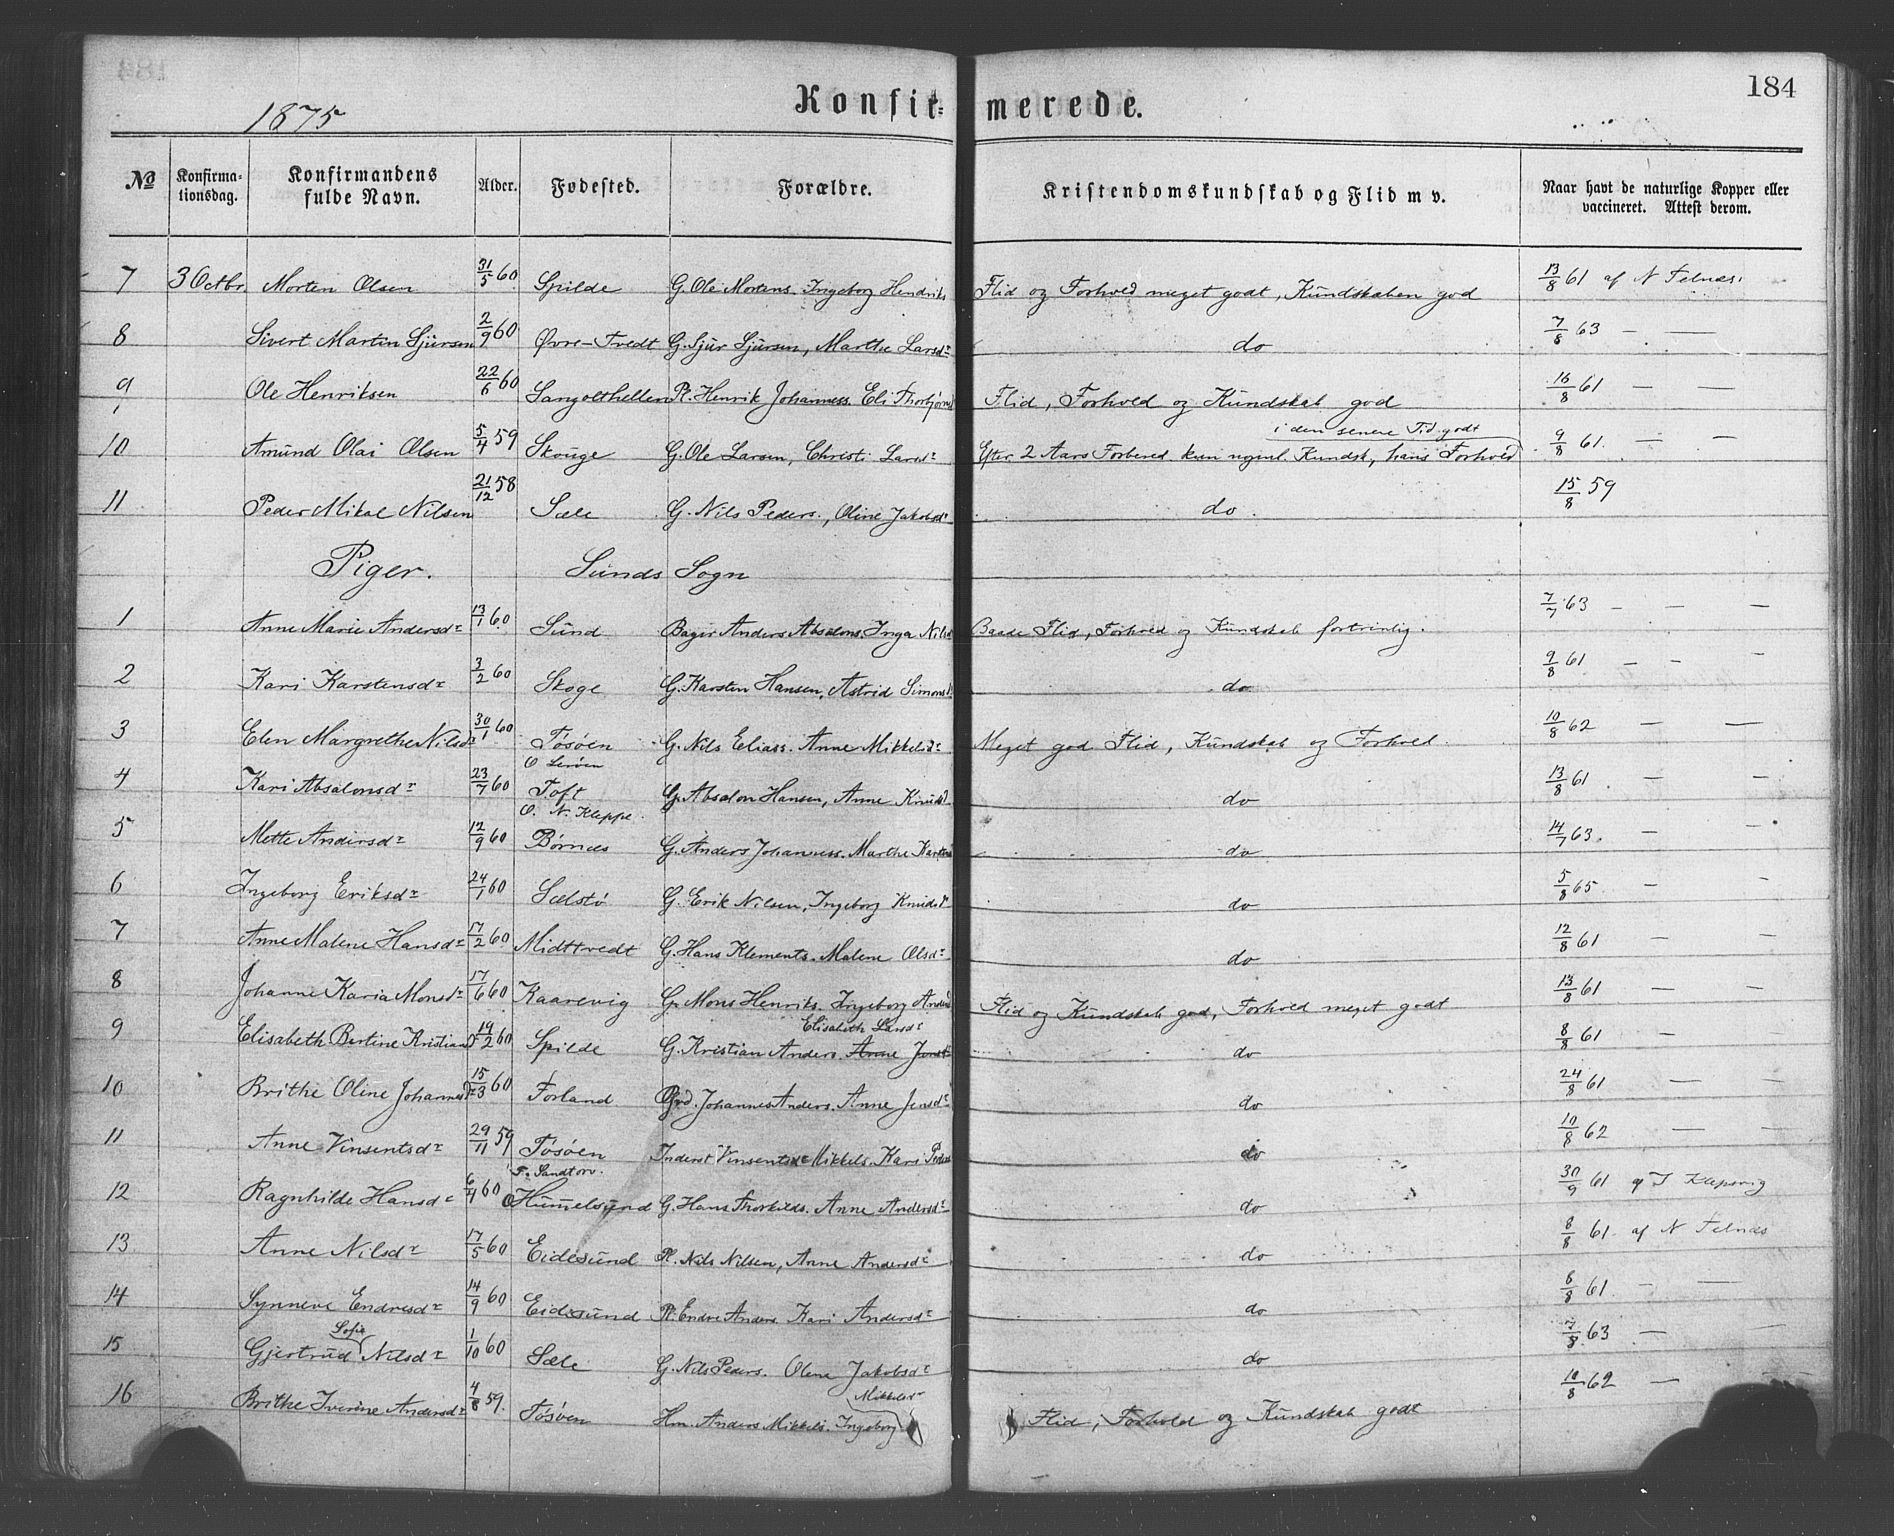 184
1875
Konfir= merede.
№ Konfirma-tionsdag. Konfirmandens fulde Navn. Alder. Fødested. Forældre. Kristendomskundskab og Flid m v. Naar havt de naturlige Kopper eller vaccineret. Attest derom.
7 3 Octbr. Morten Olsen 31/5 60 Spilde G. Ole Mortens. Ingeborg Hendriks Flid og Forhold meget godt, Kundskaben god 13/8 61 af N Telnæs.
8 Sivert Martin Sjursen 2/9 60 Øvre-Tvedt G. Sjur Sjursen, Marthe Larsdr do 7/8 63 — —
9 Ole Henriksen 22/6 60 Sangolthellen Pl. Henrik Johanness. Eli Thorbjørnsd Flid, Forhold og Kundskab god 16/8 61 — —
i den senere Tid godt
10 Amund Olai Olsen 5/4 59 Skouge G. Ole Larsen, Christi Larsdr Efter 2 Aars Forbered. kun Kundsk, hans Forhold 9/8 61. — —
11 Peder Mikal Nilsen 21/12 58 Sæle G. Nils Peders., Oline Jakobsdr do. 15/8 59
Piger. Sunds Sogn
1 Anne Marie Andersdr 13/1 60 Sund Anders Absalons. Inga Nilsd Baade Flid, Forhold og Kundskab fortrinlig. 7/7 63 — — —
2 Kari Karstensdr 3/2 60 Skoge G. Karsten Hansen, Astrid Simonsd do 9/8 61 — — —
3 Elen Margrethe Nilsdr 30/1 60 Tøsøen G. Nils Eliass. Anne Mikkelsdr Meget god Flid, Kundskab og Forhold. 10/8 62 — —
O Lerøen
4 Kari Absalonsdr 23/7 60 Toft G. Absalon Hansen, Anne Knudsd do 13/8 61 — —
O. N. Kleppe.
5 Mette Andersdr 12/9 60 Børnæs G. Anders Johanness. Marthe do 14/7 63. — —
6 Ingeborg Eriksdr 24/1 60 Sælstø G. Erik Nilsen, Ingeborg Knudsdr do 5/8 65 — —
7 Anne Malene Hansdr 17/2 60 Midttvedt G. Hans Klements. Malene Olsdr do 12/8 61 — —
8 Johanne Karia Monsdr 17/6 60 Kaarevig G. Mons Henriks. Ingeborg Flid og Kundskab god, Forhold meget godt 13/8 61 — —
Elisabeth Larsdr
9 Elisabeth Bertine Kristiansd 19/2 60 Spilde G. Kristian Anders. Anne do 8/8 61 —
10 Brithe Oline Johannesdr 15/3 60 Forland Grd. Johannes Anders. Anne Jensdr do 24/8 61 — —
11 Anne Vinsentsdr 29/11 59 Tøsøen Inderst Vinsents Mikkels. Kari Peders do 10/8 62 — —
F. Sandtorv.
12 Ragnhilde Hansdr 6/4 60 Hummelsund G. Hans Thorkilds. Anne Andersdr do 30/9 61 af I Klepsvig
13 Anne Nilsdr 17/5 60 Eidesund Pl. Nils Nilsen, Anne Andersdr do 8/8 61. af N Telnæs
14 Synneve Endresdr 14/9 60 Eidesund Pl. Endre Anders. Kari Andersdr do 8/8 61. — —
Sofie
15 Gjertrud Nilsdr 1/10 60 Sæle G. Nils Peders. Olene Jakobsdr do 7/8 63 — —
Mikkelsdr
16 Brithe Iverine Andersdr 4/8 59. Tøsøen Hm. Anders Mikkels. Ingeborg Flid, Forhold og Kundskab godt 10/8 62 — —